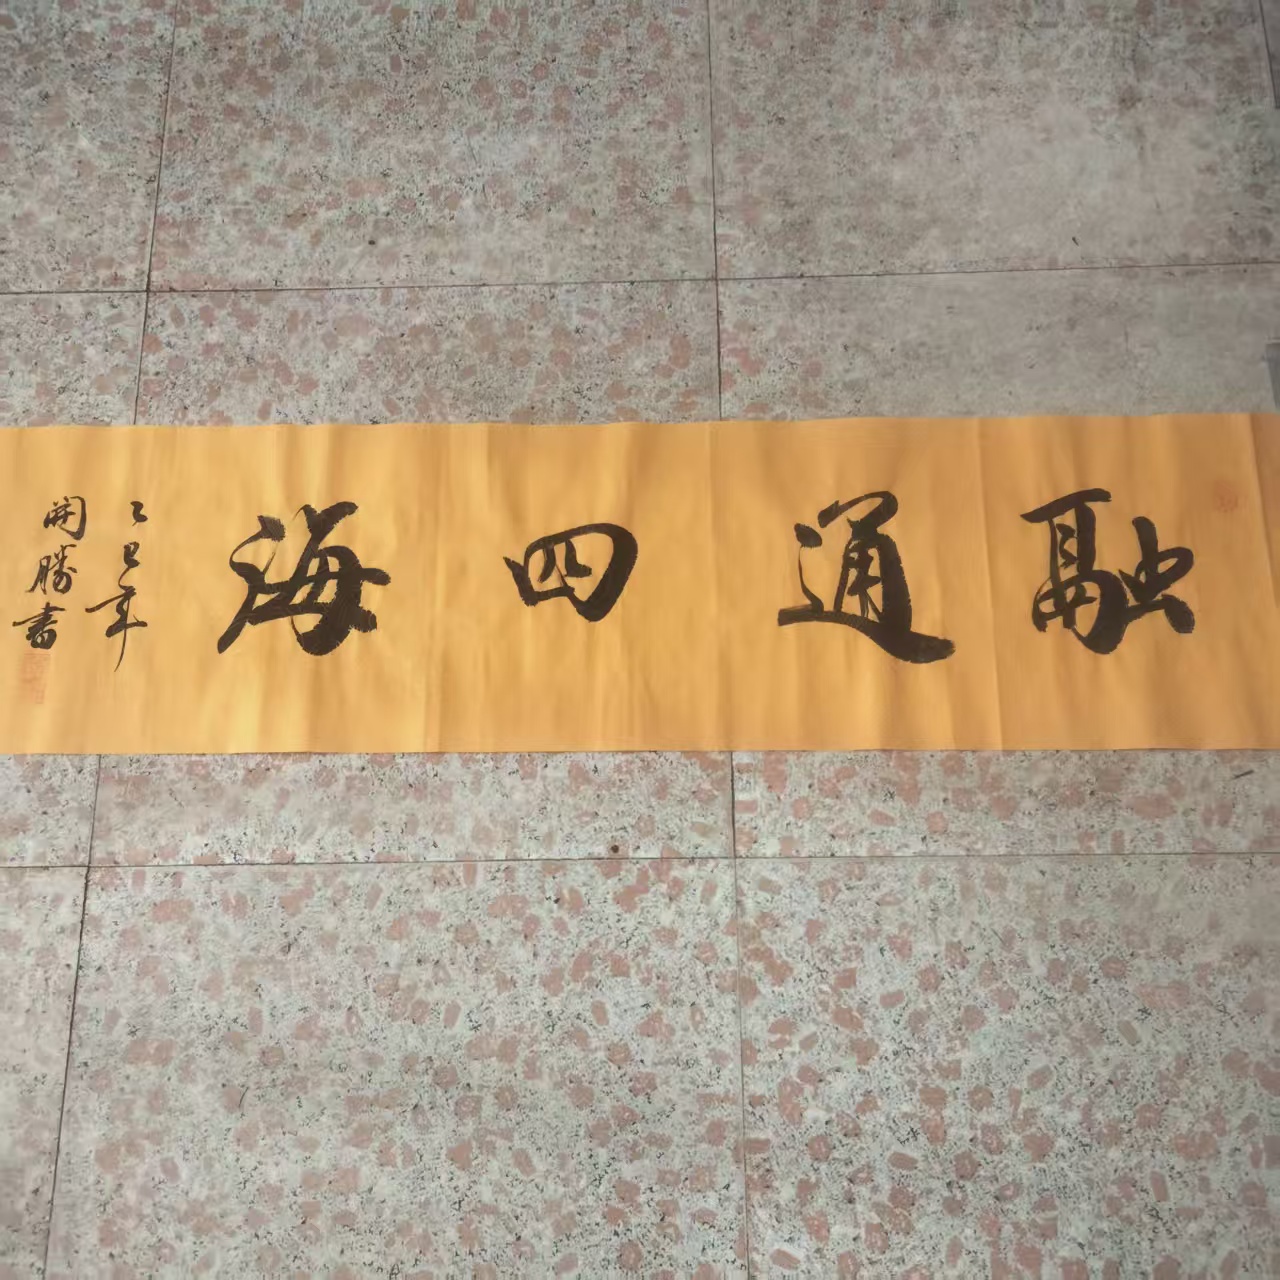 融通四海
乙巳年
開勝書